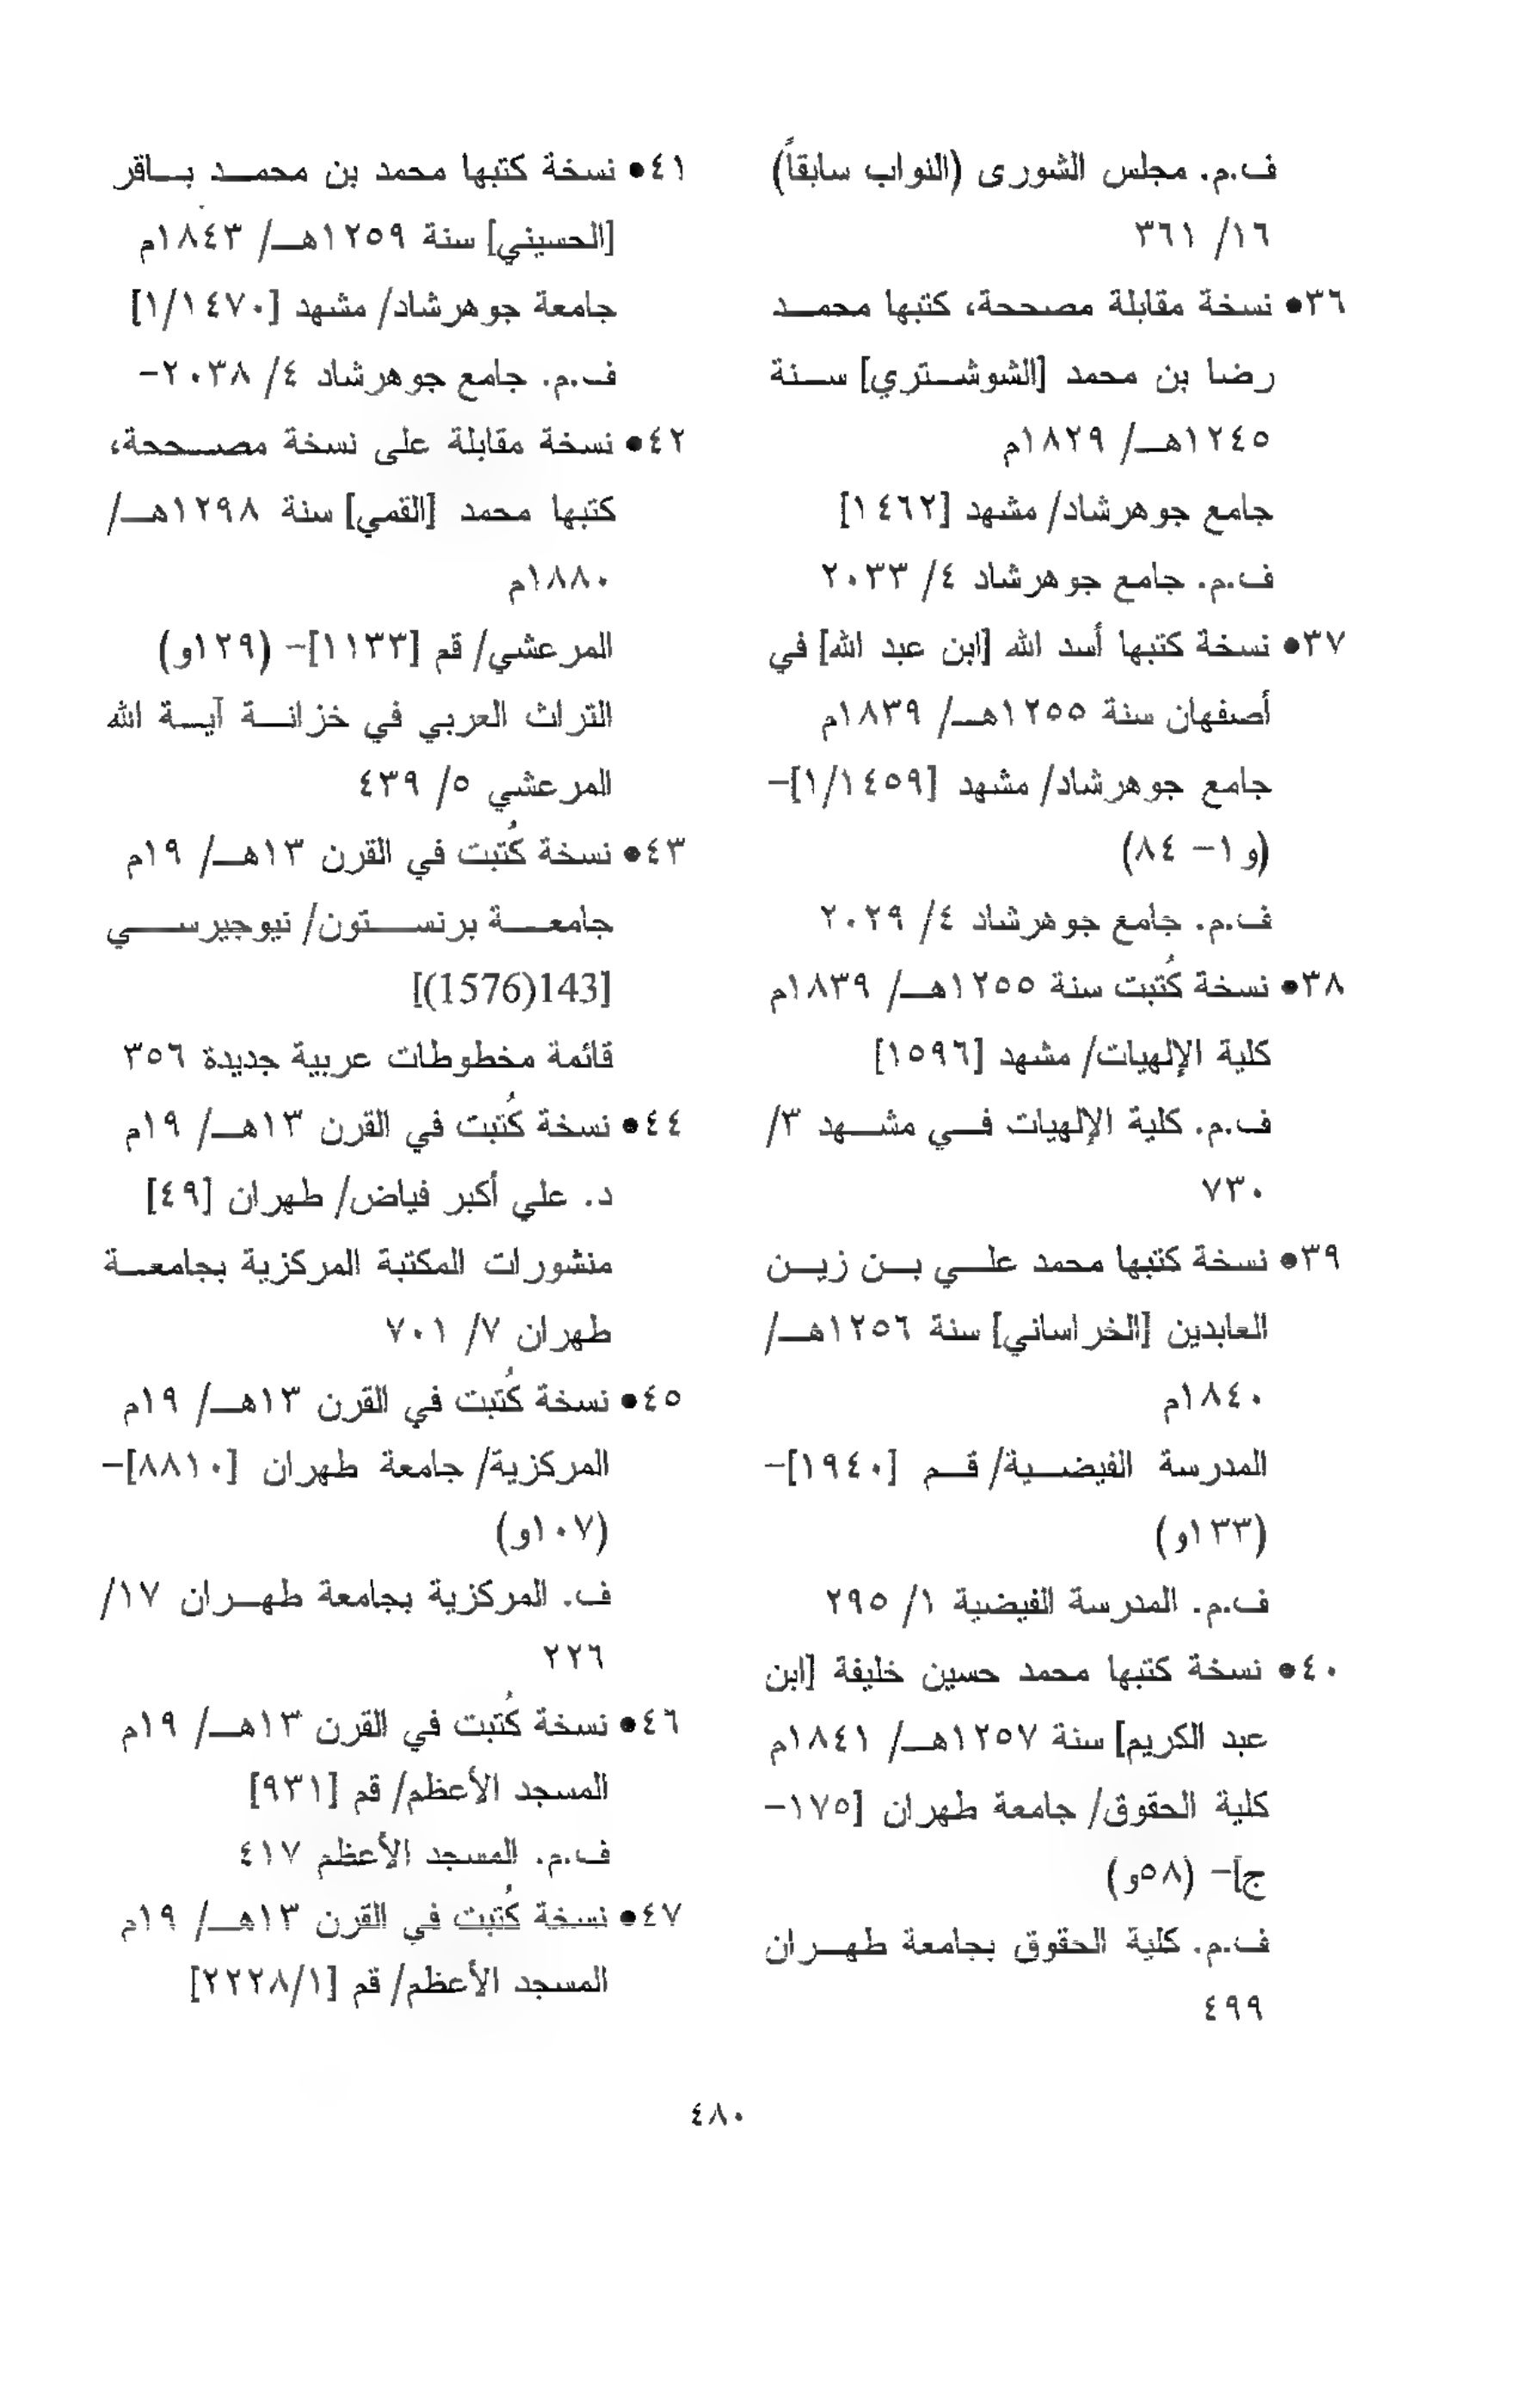 ف.م. مجلس الشورى (النواب سابقاً)
١٦/ ٣٦١
٣٦• نسخة مقابلة مصححة، كتبها محمد
رضا بن محمد [الشوشتري] سنة
١٢٤٥هـ/ ١٨٢٩م
جامع جوهرشاد/ مشهد [١٤٦٢]
ف.م. جامع جوهرشاد ٤/ ٢٠٣٣
٣٧• نسخة كتبها أسد الله [ابن عبد الله] في
أصفهان سنة ١٢٥٥هـ/ ١٨٣٩م
جامع جوهرشاد/ مشهد [١/١٤٥٩]-
(و١- ٨٤)
ف.م. جامع جوهرشاد ٤/ ٢٠٢٩
٣٨• نسخة كُتبت سنة ١٢٥٥هـ/ ١٨٣٩م
كلية الإلهيات/ مشهد [١٥٩٦]
ف.م. كلية الإلهيات في مشهد ٣/
٧٣٠
٣٩• نسخة كتبها محمد علي بن زين
العابدين [الخراساني] سنة ١٢٥٦هـ/
١٨٤٠م
المدرسة الفيضية/ قم [١٩٤٠]-
(١٣٣و)
ف.م. المدرسة الفيضية ١/ ٢٩٥
٤٠• نسخة كتبها محمد حسين خليفة [ابن
عبد الكريم] سنة ١٢٥٧هـ/ ١٨٤١م
كلية الحقوق/ جامعة طهران [١٧٥-
ج]- (٥٨و)
ف.م. كلية الحقوق بجامعة طهران
٤٩٩
٤١• نسخة كتبها محمد بن محمد باقر
[الحسيني] سنة ١٢٥٩هـ/ ١٨٤٣م
جامعة جوهرشاد/ مشهد [١/١٤٧٠]
ف.م. جامع جوهرشاد ٤/ ٢٠٣٨-
٤٢• نسخة مقابلة على نسخة مصححة،
كتبها محمد [القمي] سنة ١٢٩٨هـ/
١٨٨٠م
المرعشي/ قم [١١٣٣]- (١٢٩و)
التراث العربي في خزانة آية الله
المرعشي ٥/ ٤٣٩
٤٣• نسخة كُتبت في القرن ١٣هـ/ ١٩م
جامعة برنستون/ نيوجيرسي
[143(1576)]
قائمة مخطوطات عربية جديدة ٣٥٦
٤٤• نسخة كُتبت في القرن ١٣هـ/ ١٩م
د. علي أكبر فياض/ طهران [٤٩]
منشورات المكتبة المركزية بجامعة
طهران ٧/ ٧٠١
٤٥• نسخة كُتبت في القرن ١٣هـ/ ١٩م
المركزية/ جامعة طهران [٨٨١٠]-
(١٠٧و)
ف. المركزية بجامعة طهران ١٧/
٢٢٦
٤٦• نسخة كُتبت في القرن ١٣هـ/ ١٩م
المسجد الأعظم/ قم [٩٣١]
ف.م. المسجد الأعظم ٤١٧
٤٧• نسخة كُتبت في القرن ١٣هـ/ ١٩م
المسجد الأعظم/ قم [٢٢٢٨/١]
٤٨٠